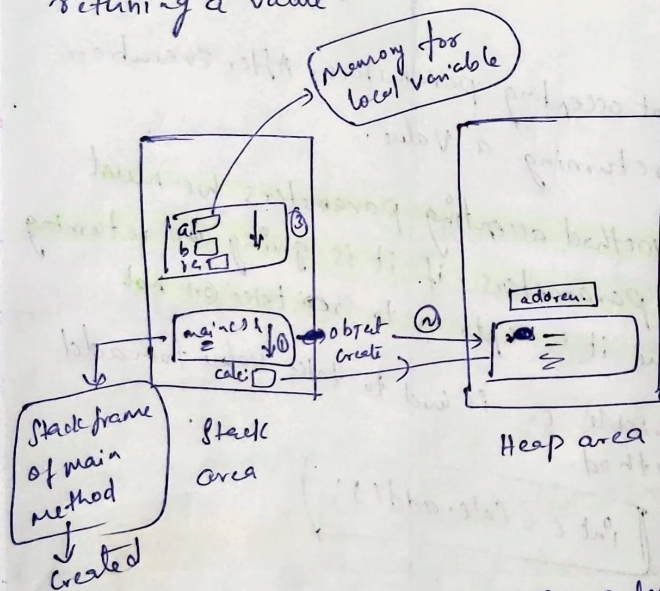 returning a value
Memory for
local variable
a
b
res
③
main() {
①
calc
object
create
②
address.
Stack frame
of main
method
Created
Stack
area
Heap area